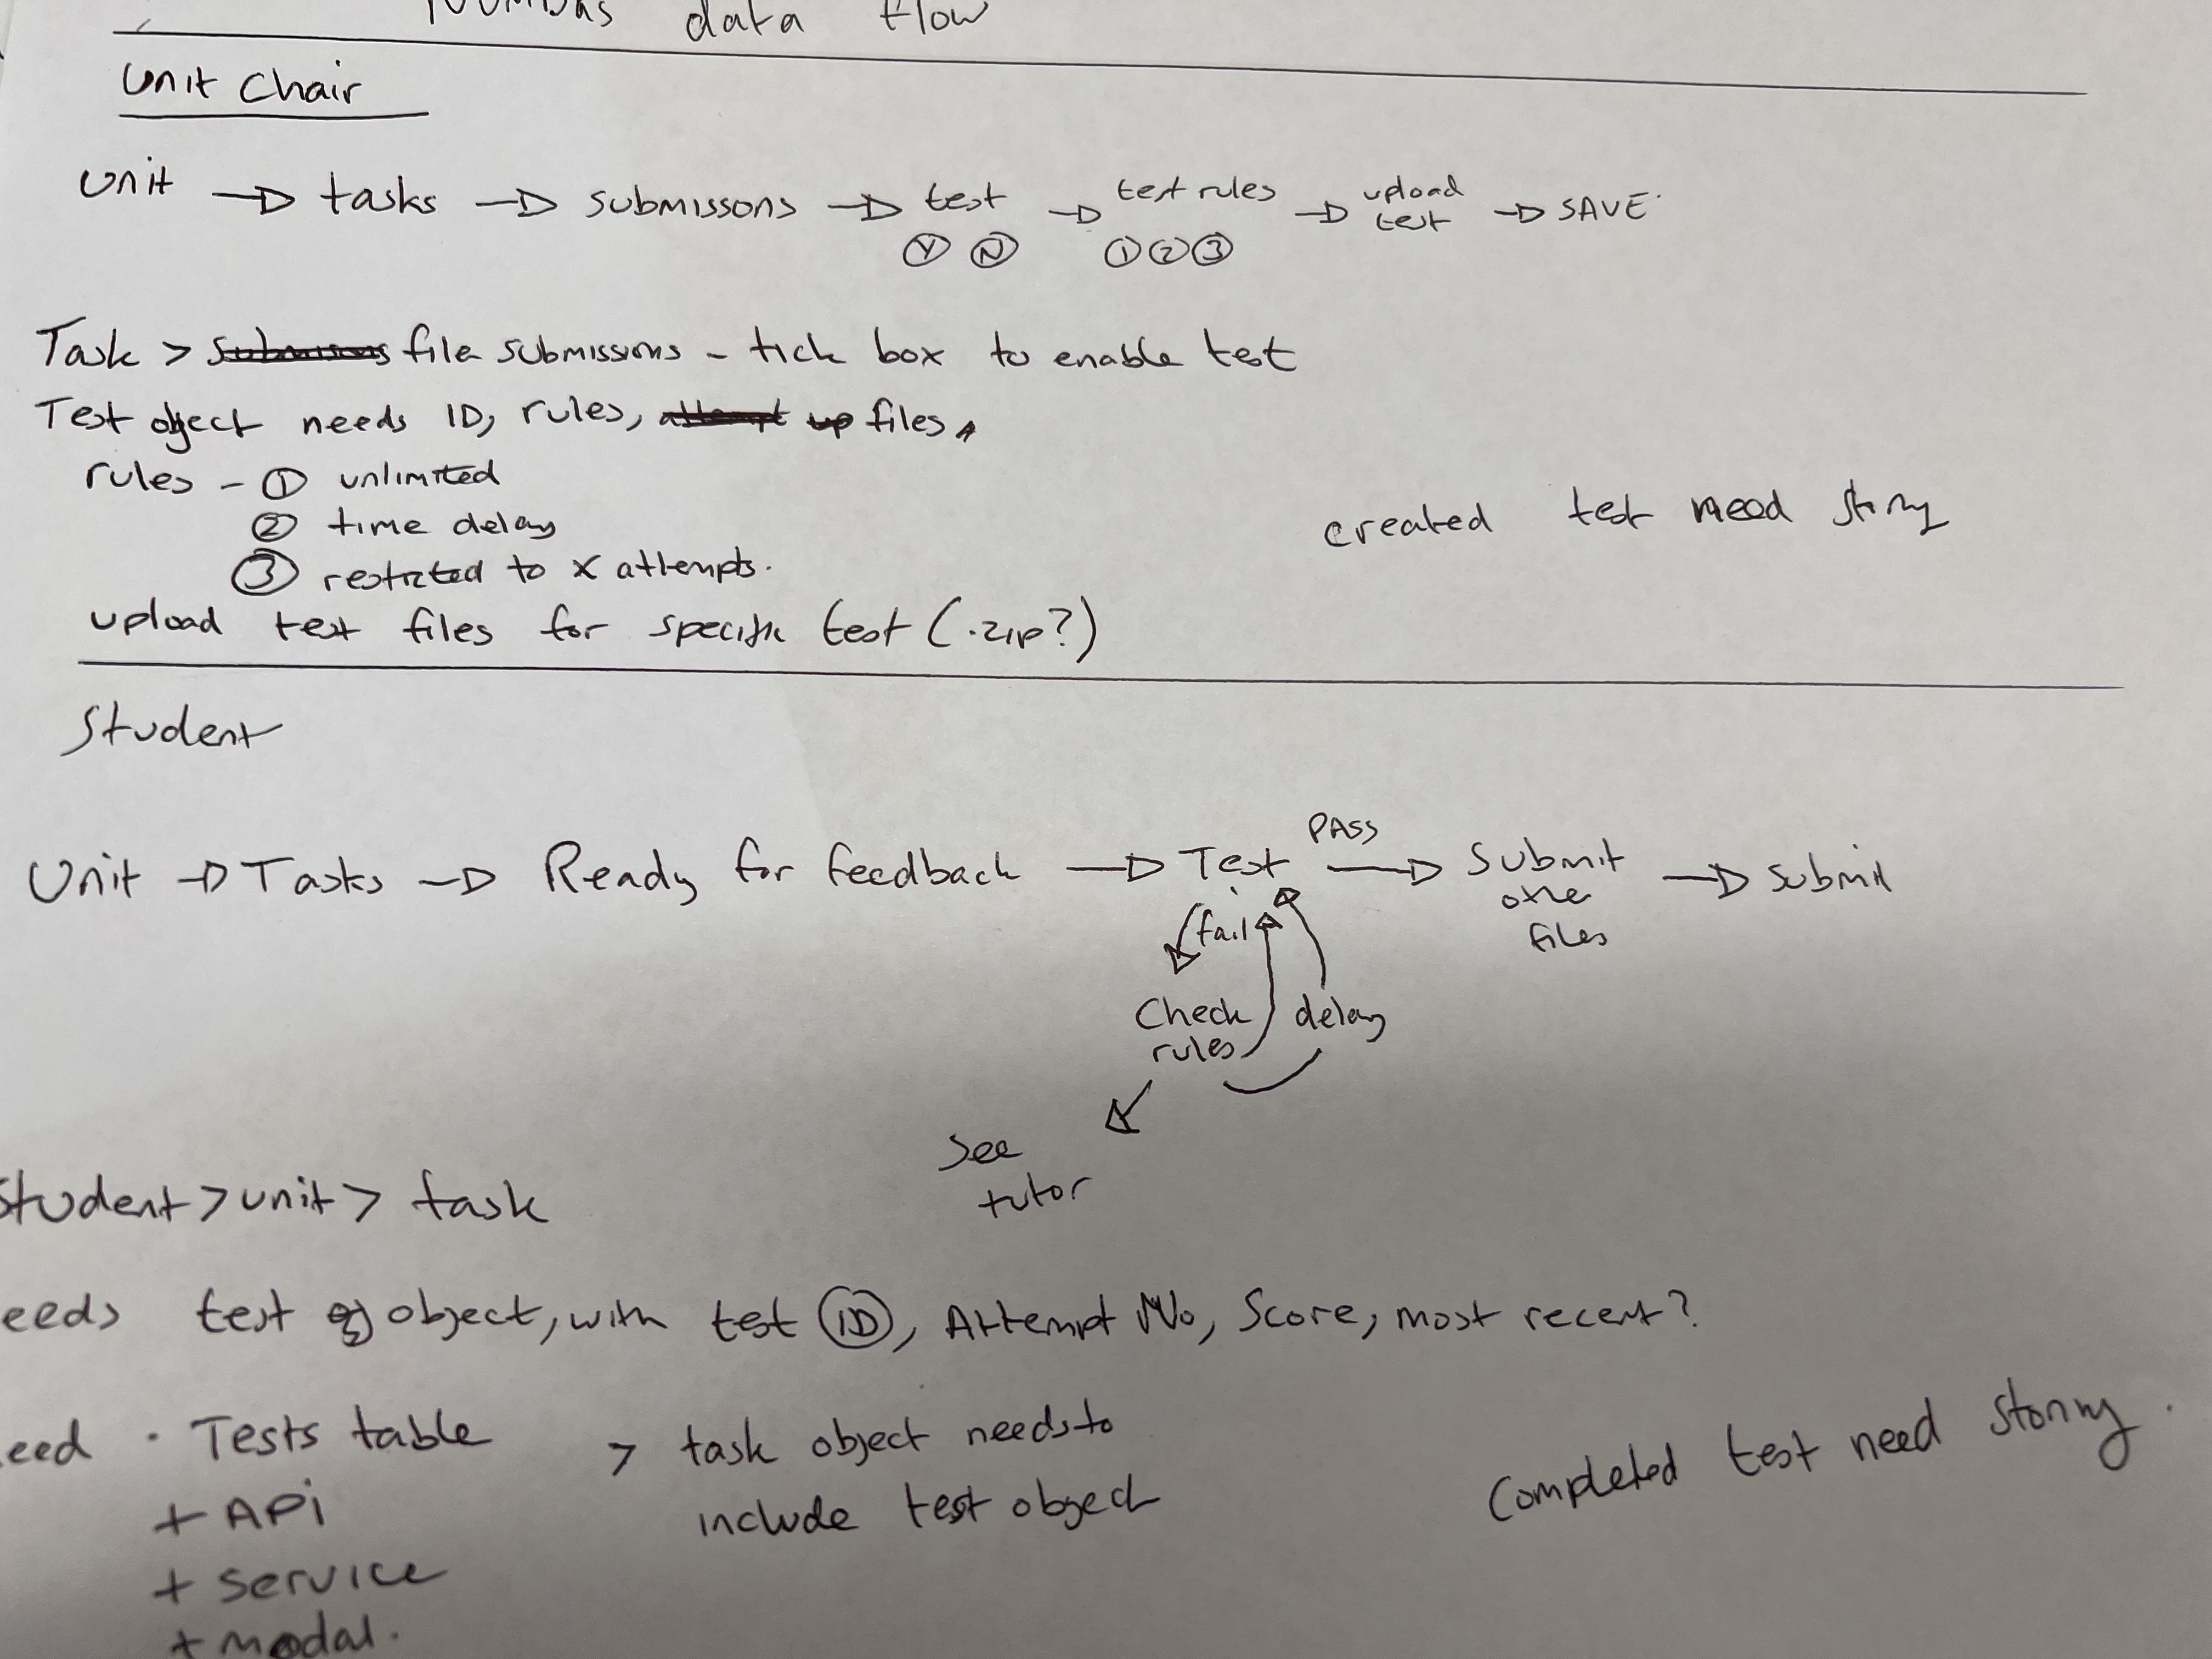 data flow
Unit Chair
Unit → tasks → submissons → test → test rules → upload test → SAVE.
Y N 1 2 3
Task > file submissions - tick box to enable test
Test object needs ID, rules, files
rules - ① unlimited
② time delay
③ restricted to x attempts.
created test need storing
upload test files for specific test (.zip?)
Student
PASS
Unit → Tasks → Ready for feedback → Test → Submit → submit
files
fail
Check rules
delay
See
tutor
Student > unit > task
eeds test object, with test ID, Attempt No, Score, most recent?
eed · Tests table > task object needs to
+ API include test object
Completed test need storing.
+ service
+ modal.